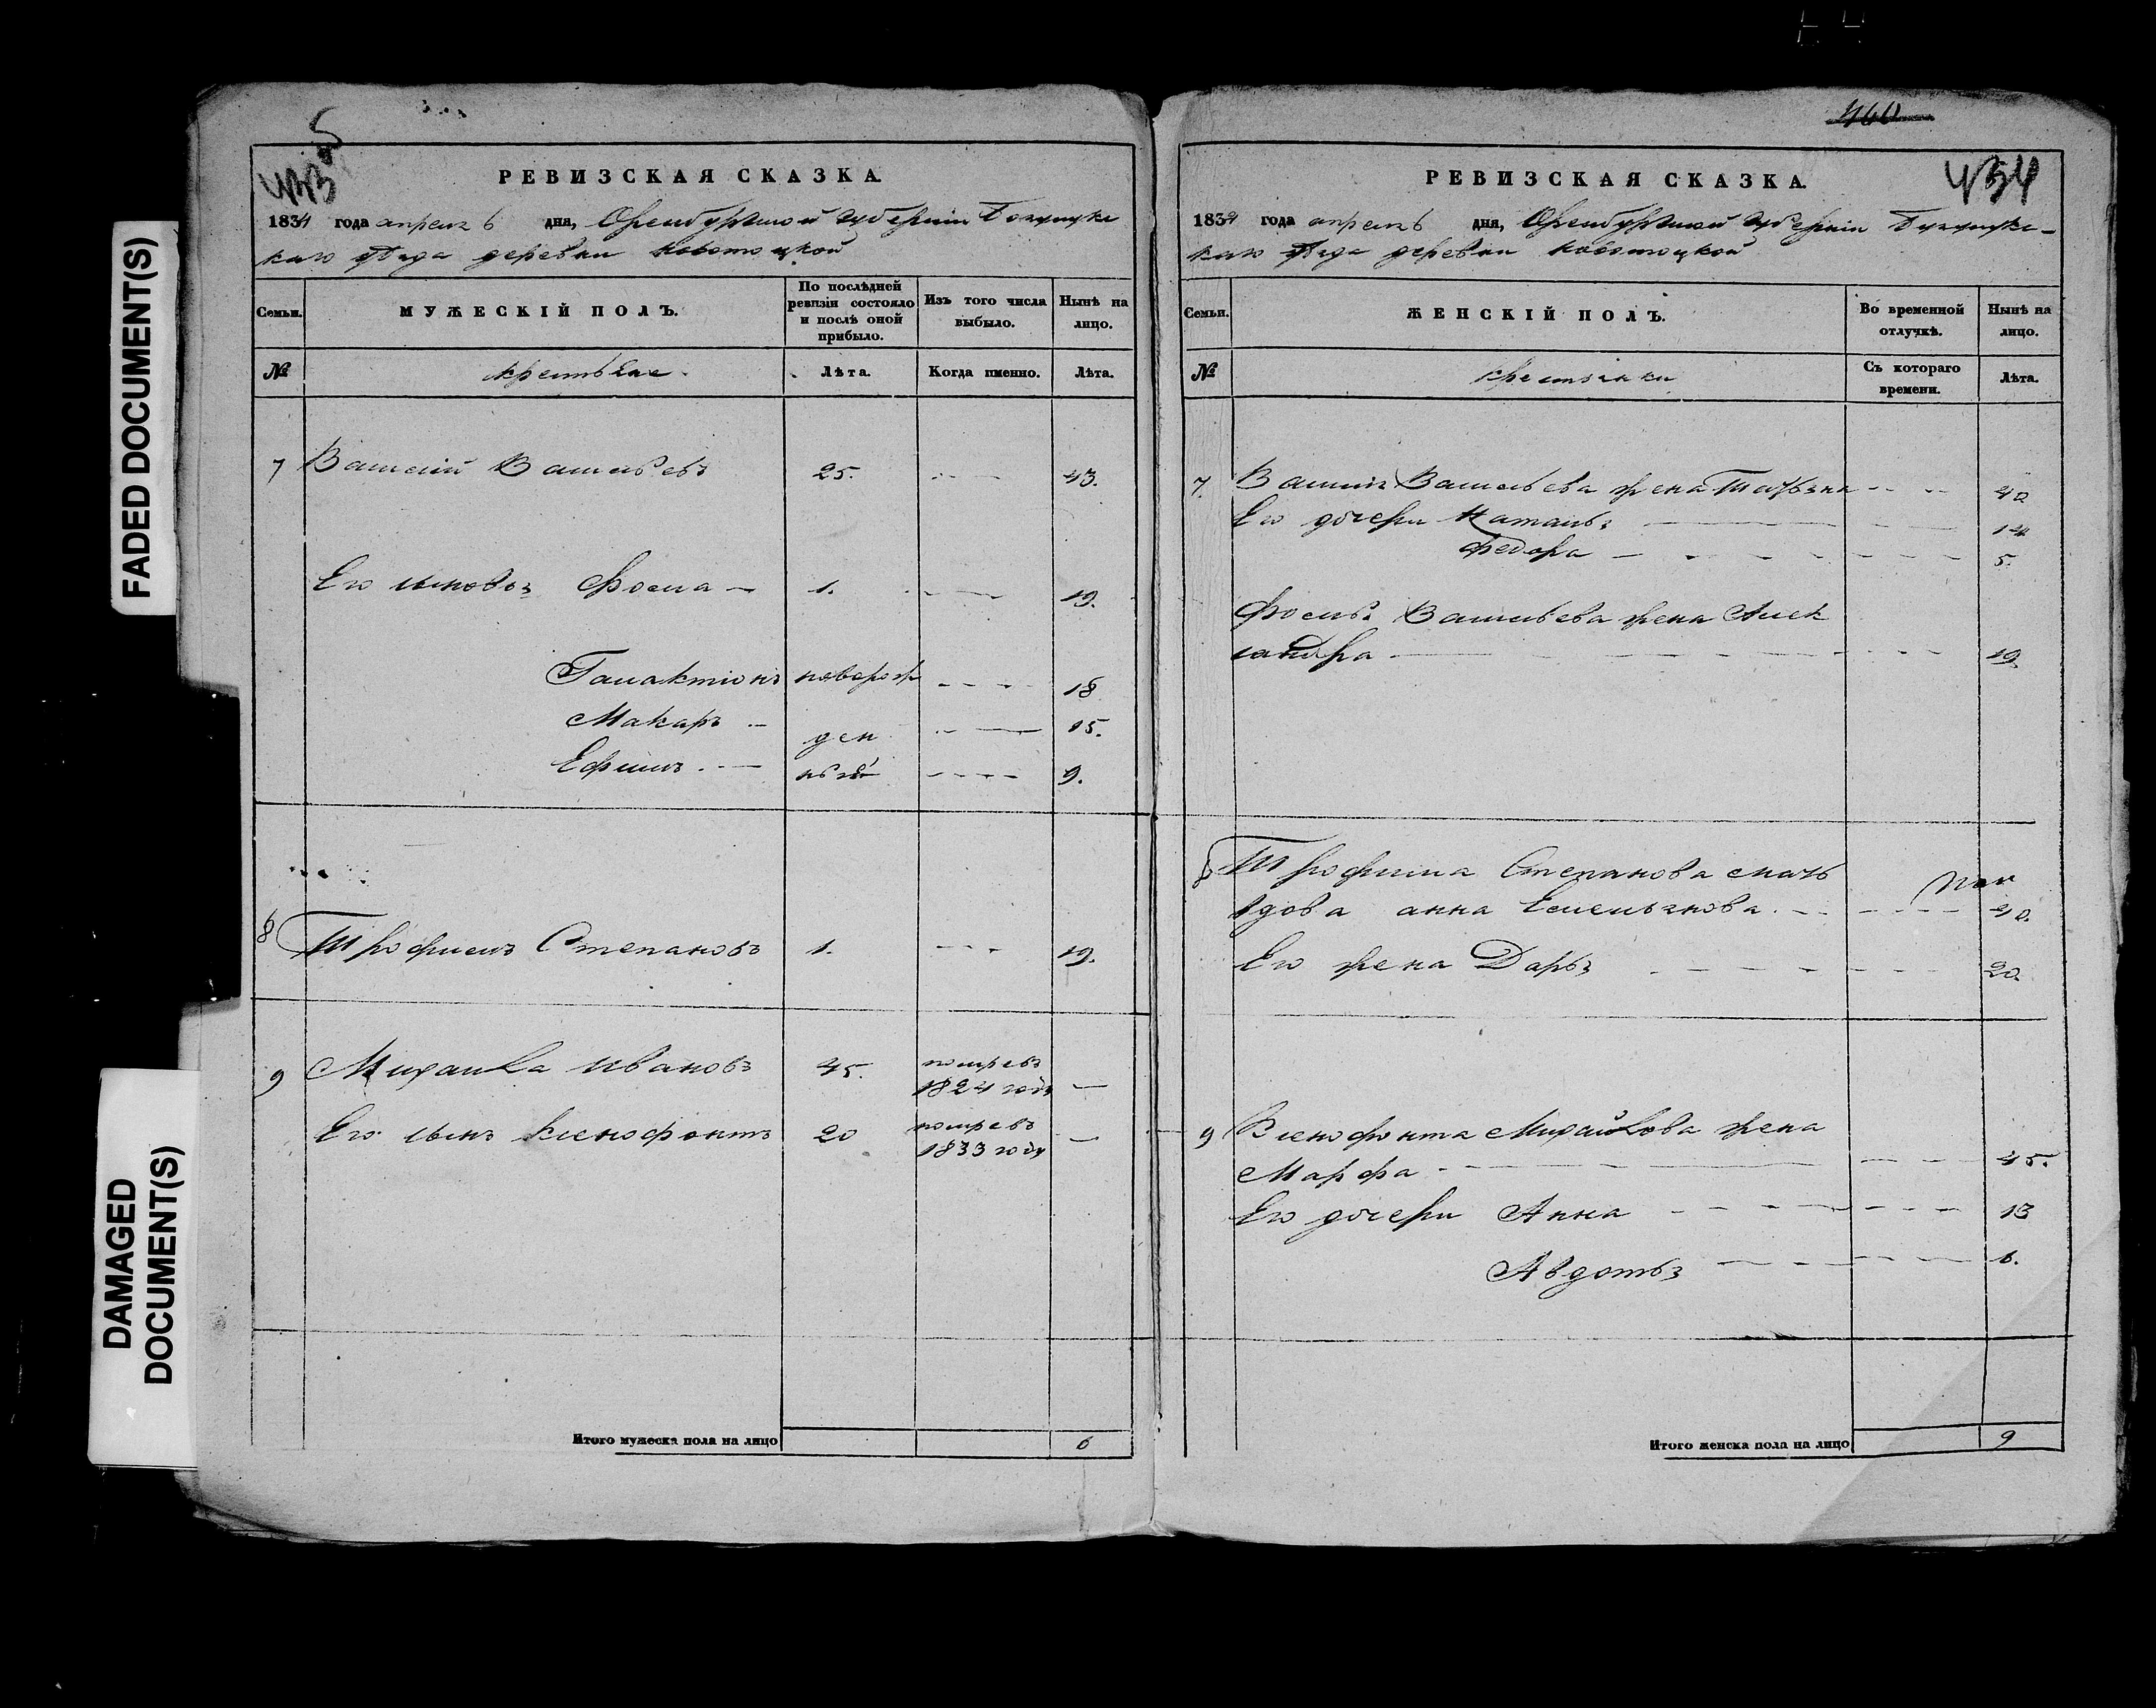 FADED DOCUMENT(S)
DAMAGED
DOCUMENT(S)
5
433
РЕВИЗСКАЯ СКАЗКА.
1834 года апреля 6 дня, Оренбургской губернии
деревни
Семьи.
МУЖЕСКІЙ ПОЛЪ.
По послѣдней ревизіи состояло и послѣ оной прибыло.
Изъ того числа выбыло.
Нынѣ на лицо.
№ крестьяне Лѣта. Когда именно. Лѣта.
7 Василий Васильевъ 25. 43.
Его сыновья Фома 1. 19.
Галактионъ новорож 18
Макаръ ден 15.
Ефимъ ный 9.
8 Трофимъ Степановъ 1. 19.
9 Михайла Ивановъ 45. помре въ 1824 году —
Его сынъ Ксенофонтъ 20 помре въ 1833 году —
Итого мужеска пола на лицо 6
460
434
РЕВИЗСКАЯ СКАЗКА.
1834 года апреля 6 дня, Оренбургской губернии
деревни
Семьи.
ЖЕНСКІЙ ПОЛЪ.
Во временной отлучкѣ.
Нынѣ на лицо.
№ крестьянки Съ котораго времени. Лѣта.
7. Василия Васильева жена Татьяна 40
Его дочери Наталья 14
Федора 5.
Фомы Васильева жена Алек
сандра 19
8 Трофима Степанова мать
вдова анна Емельянова 40.
Его жена Дарья 20.
9 Ксенофонта Михайлова жена
Марфа 45.
Его дочери Анна 13
Авдотья 6.
Итого женска пола на лицо 9